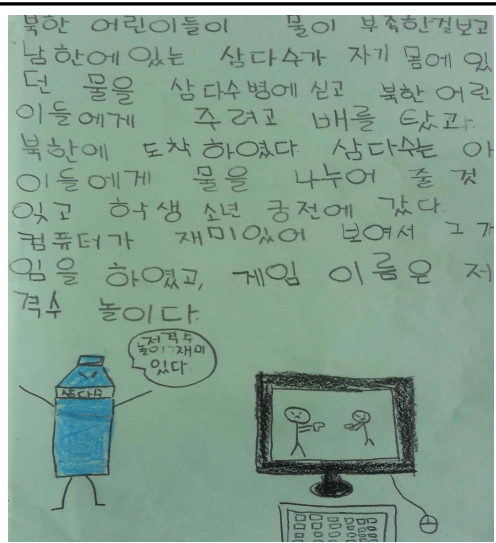 북한 어린이들이 물이 부족한걸보고
남한에 있는 삼다수가 자기 몸에 있
던 물을 삼다수병에 싣고 북한 어린
이들에게 주려고 배를 탔고
북한에 도착 하였다 삼다수는 아
이들에게 물을 나누어 줄 것
잊고 학생 소년 궁전에 갔다.
컴퓨터가 재미있어 보여서 그 게
임을 하였고, 게임 이름은 저
격수 놀이다.
저격수
놀이 재미
있다.
삼다수